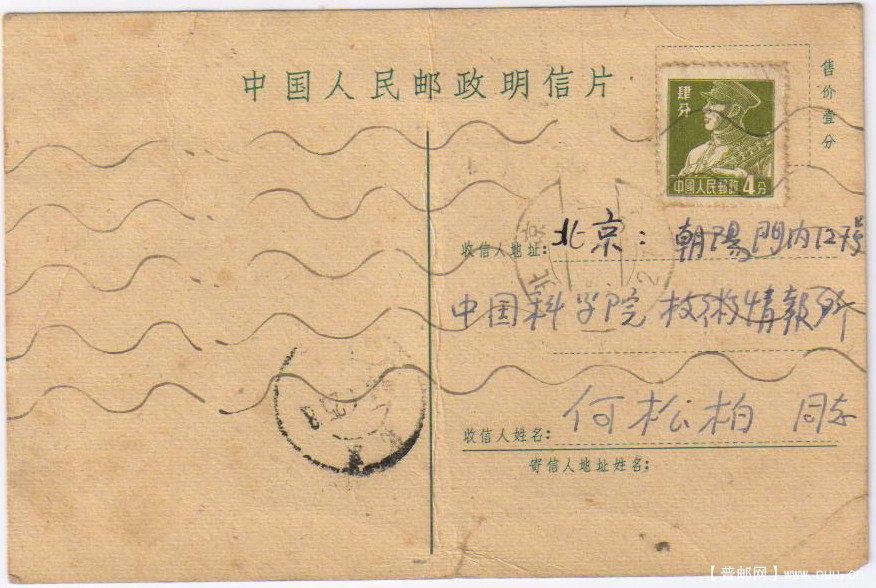 中国人民邮政明信片
售价壹分
肆分
中國人民郵政 4分
收信人地址: 北京: 朝陽門內127號
中国科学院技術情報所
收信人姓名: 何松柏 同志
寄信人地址姓名:
北京
【普邮网】www.puu.cn